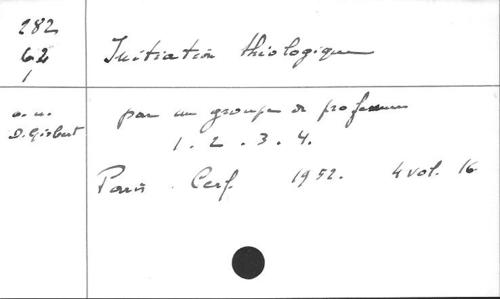 282
62
1
Initiation théologique
a. u.
D. Gisbert
par un groupe de professeurs
1. 2. 3. 4.
Paris Cerf. 1952. 4 vol. 16